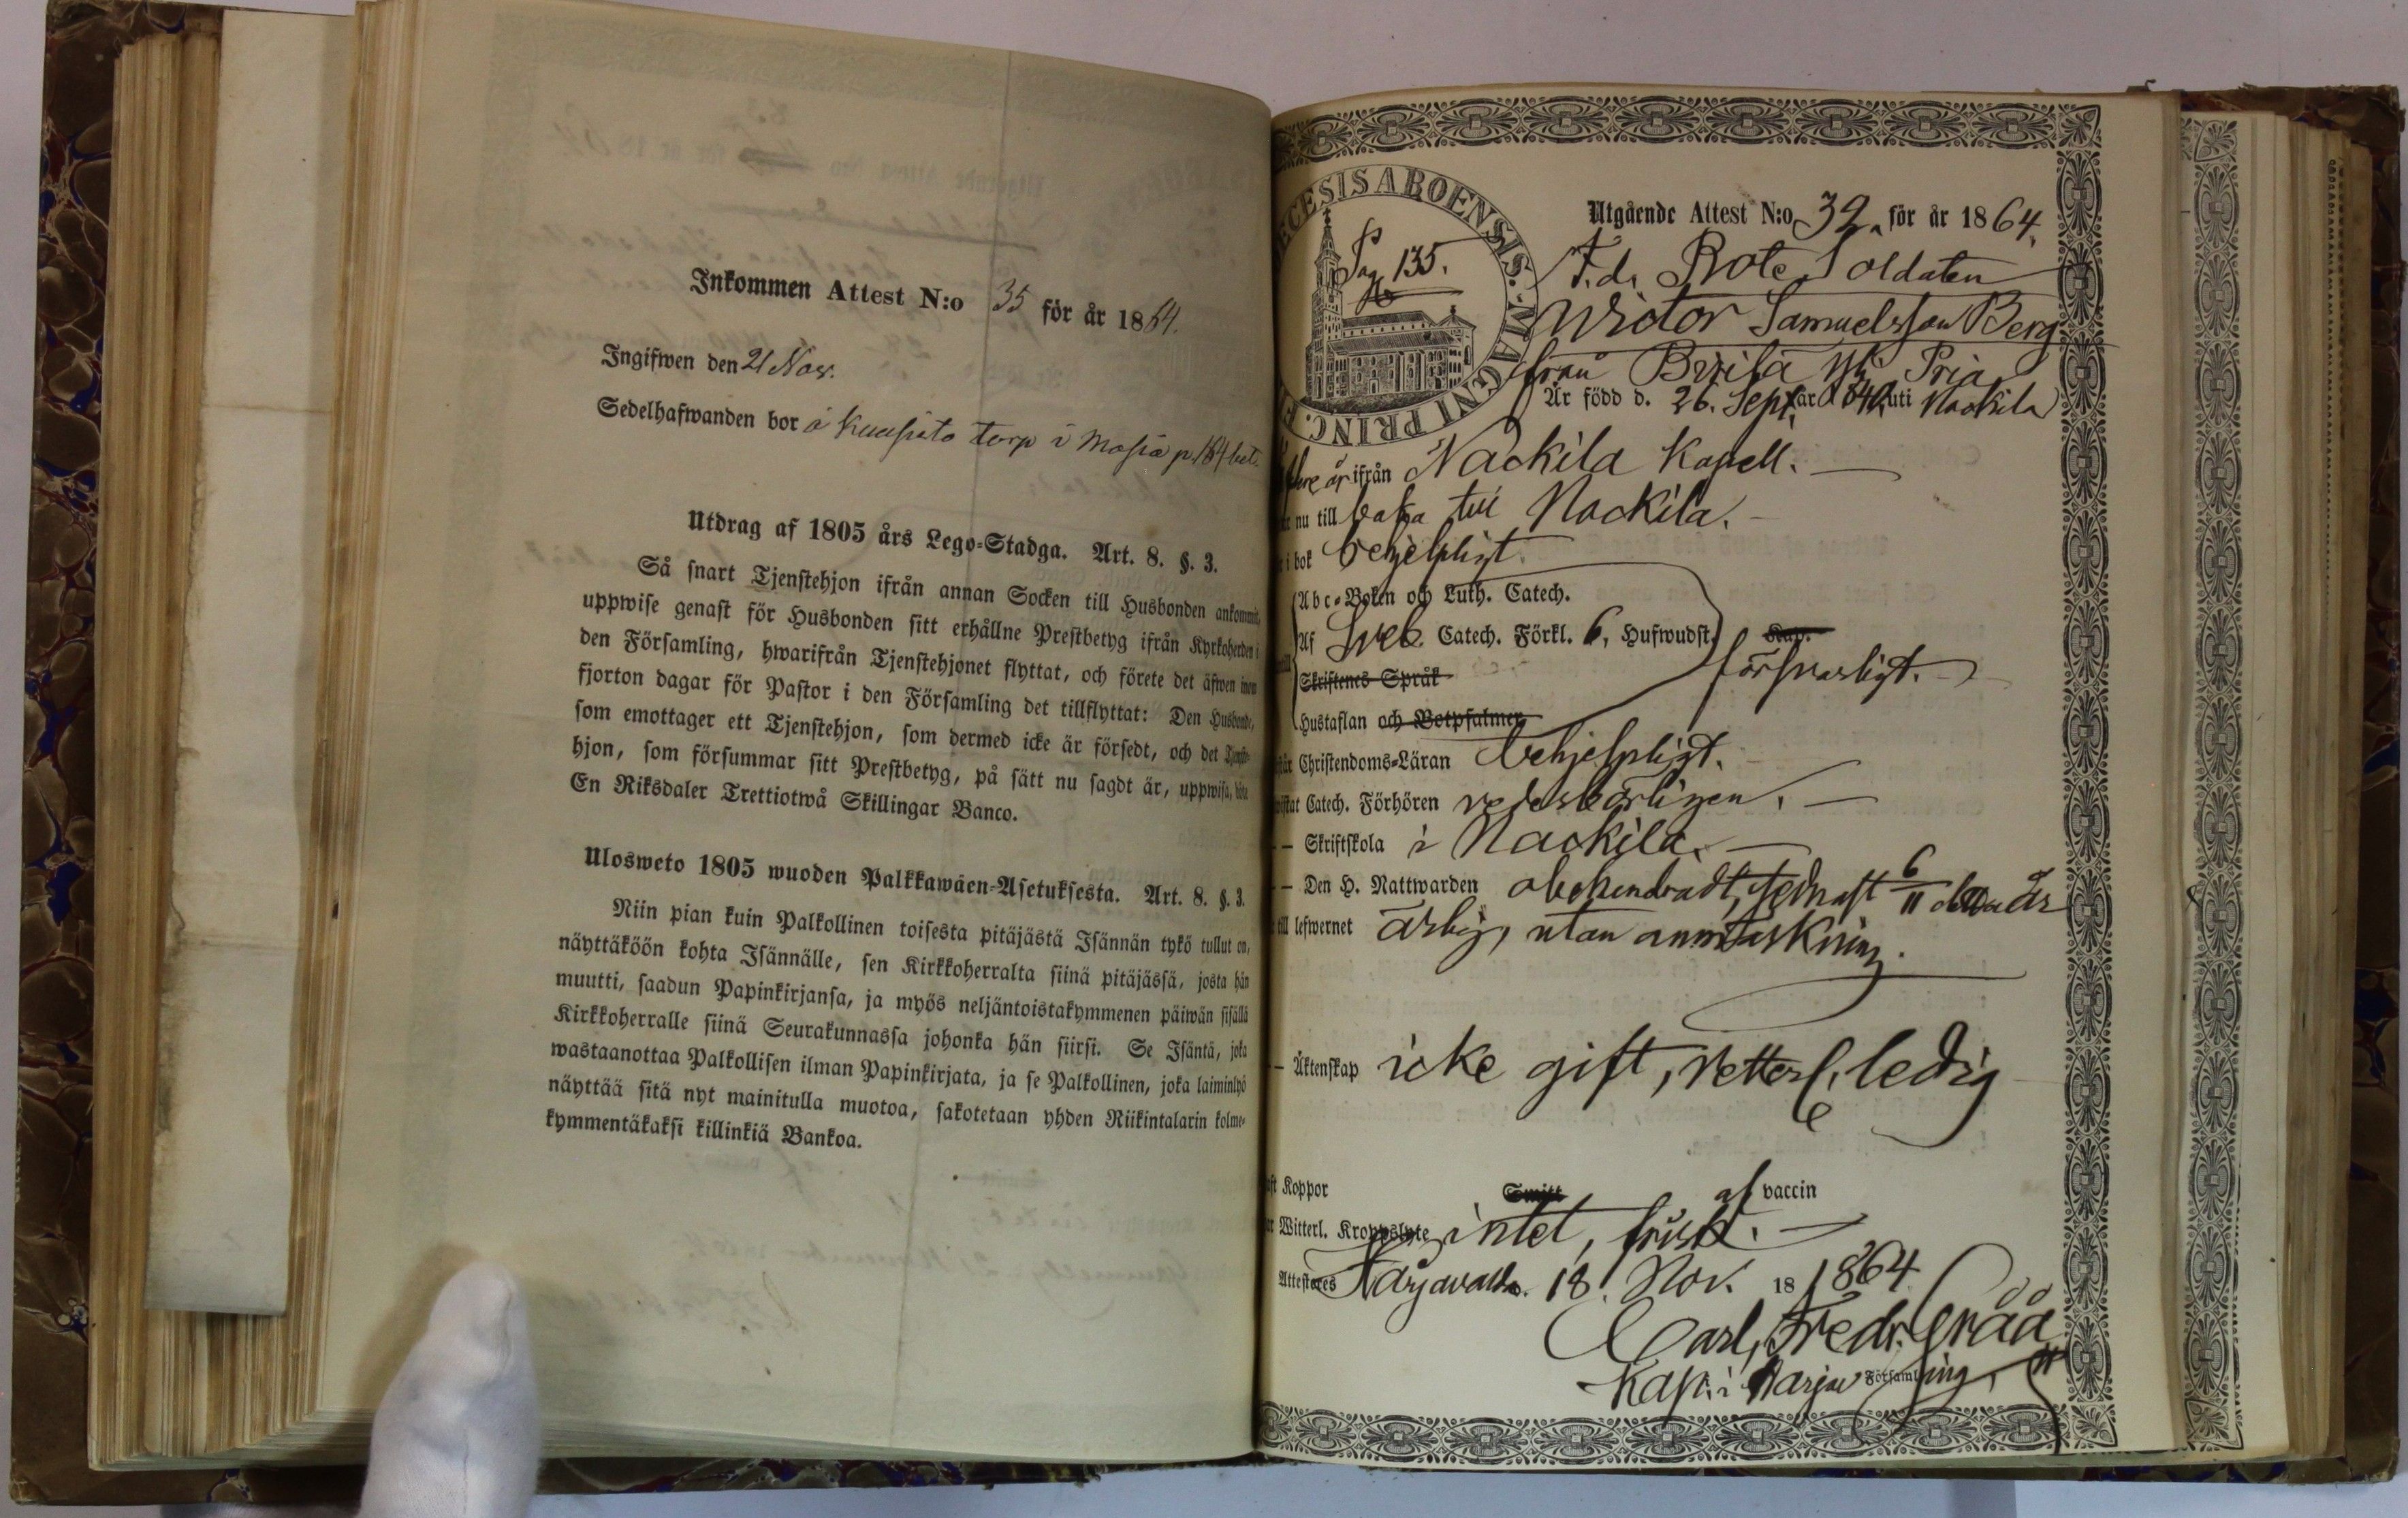 Inkommen Attest N:o 35 för år 1864.
Ingifwen den 21 Nov.
Sedelhafwanden bor å torp i p. 184
Utdrag af 1805 års Lego-Stadga. Art. 8. §. 3.
Så snart Tjenstehjon ifrån annan Socken till Husbonden ankommit,
uppwise genast för Husbonden sitt erhållne Prestbetyg ifrån Kyrkoherden i
den Församling, hwarifrån Tjenstehjonet flyttat, och förete det äfwen inom
fjorton dagar för Pastor i den Församling det tillflyttat: Den Husbonde,
som emottager ett Tjenstehjon, som dermed icke är försedt, och det Tjenste-
hjon, som försummar sitt Prestbetyg, på sätt nu sagdt är, uppwisa, böte
En Riksdaler Trettiotwå Skillingar Banco.
Ulosweto 1805 wuoden Palkkawäen-Asetuksesta. Art. 8. §. 3.
Niin pian kuin Palkollinen toisesta pitäjästä Isännän tykö tullut on,
näyttäköön kohta Isännälle, sen Kirkkoherralta siinä pitäjässä, josta hän
muutti, saadun Papinkirjansa, ja myös neljäntoistakymmenen päiwän sisällä
Kirkkoherralle siinä Seurakunnassa johonka hän siirsi. Se Isäntä, joka
wastaanottaa Palkollisen ilman Papinkirjata, ja se Palkollinen, joka laiminlyö
näyttää sitä nyt mainitulla muotoa, sakotetaan yhden Riikintalarin kolme-
kymmentäkaksi killinkiä Bankoa.
ECESIS ABOENSIS. MAGNI PRINC. F
Pag. 135.
Utgående Attest N:o 32. för år 1864.
F.d. Rote Soldaten
Wictor Samuelsson Berg
från
Är född d. 26. Sept. år 1840 uti Nackila
ifrån Nackila Kapell.
nu till baka till Nackila.
i bok behjelpligt
Abc-Boken och Luth. Catech.
Af Sveb. Catech. Förkl. 6, Hufwudst. Kap.
försvarligt.
Skriftenes Språk
Hustaflan och Botpsalmer
Christendoms-Läran behjelpligt.
Catech. Förhören vederbörligen.
Skriftskola i Nackila.
Den H. Nattwarden obehindradt, sednast 6/11 detta år
till lefwernet ärlig, utan anmärkning.
Äktenskap icke gift, ledig
Koppor Smitt af vaccin
Witterl. Kroppslyte intet, frisk.
Attesteres Harjavalta. 18. Nov. 18 1864
Carl Fredr. Gråå
Kap. i Harjav. Församling.